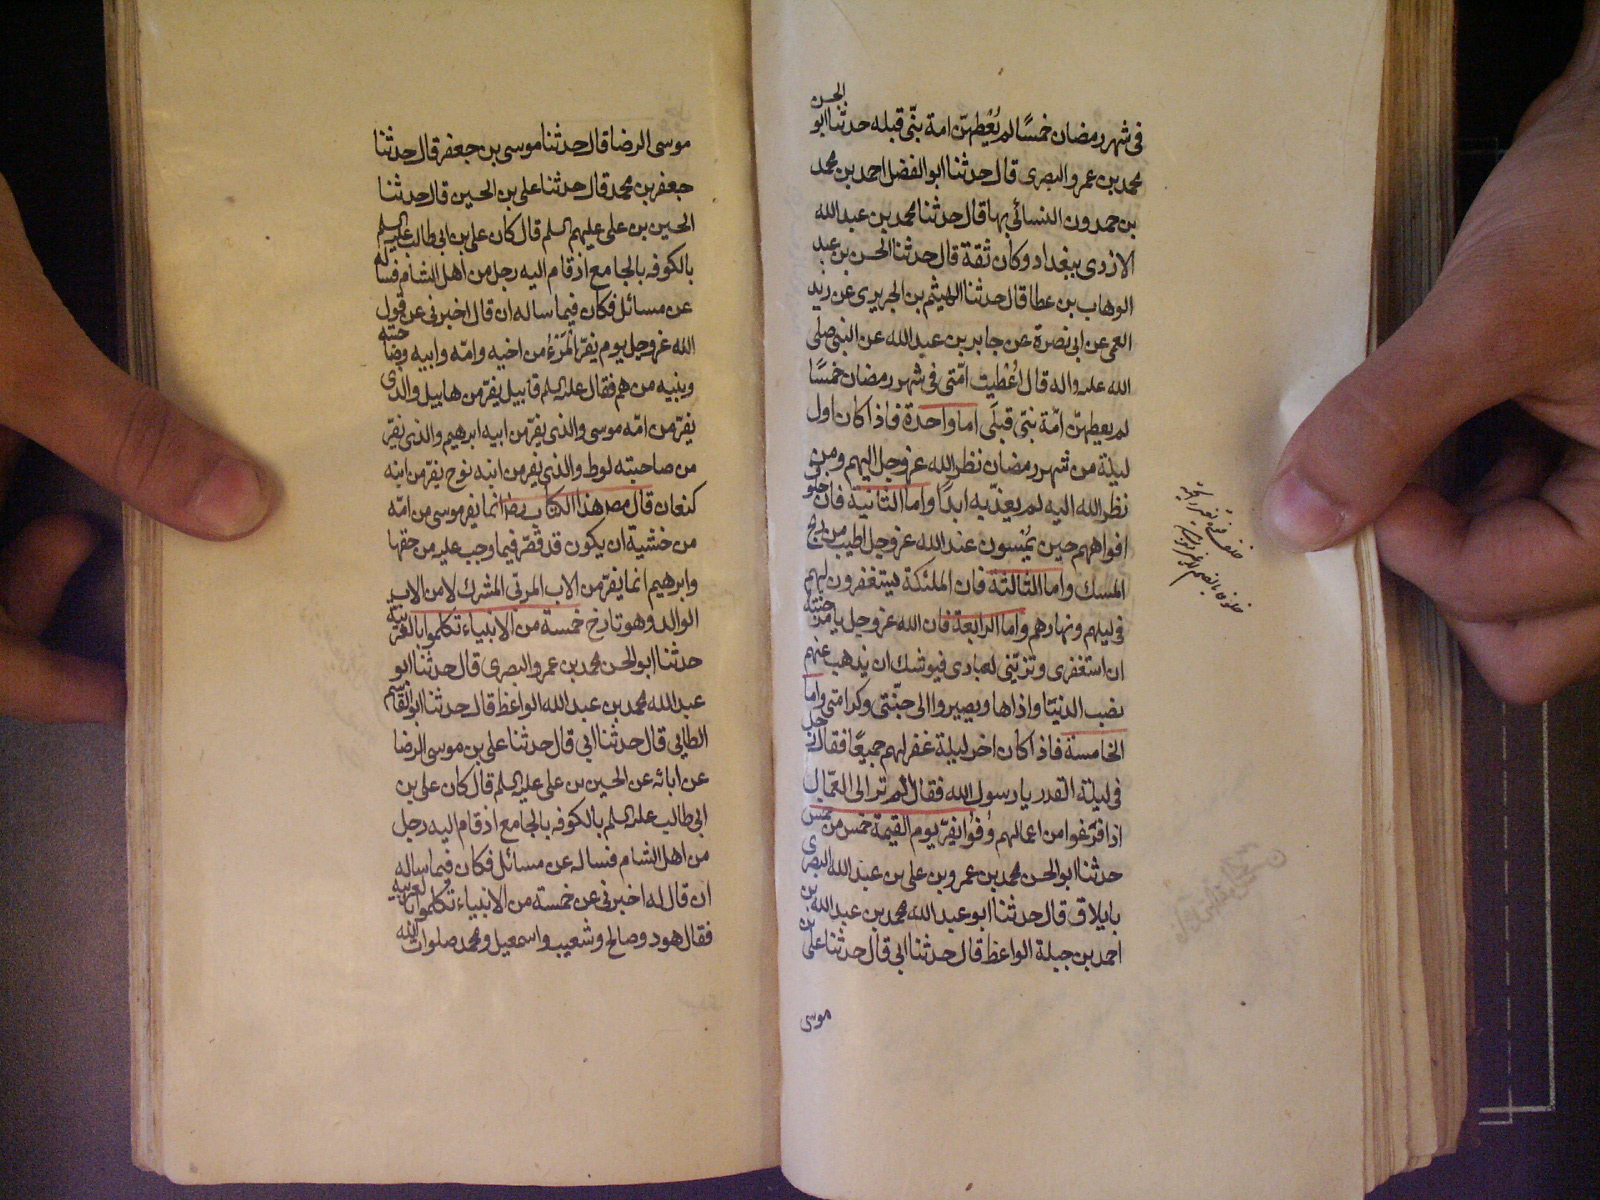 فى شهر رمضان خمسًا لم يُعْطهنّ امة بنّى قبله حدثنا ابو الحسن
محمد بن عمرو البصرى قال حدثنا ابو الفضل احمد بن محمد
بن حمدون النسائى بها قال حدثنا محمد بن عبد الله
الازدى ببغداد وكان ثقة قال حدثنا الحسن بن عبد
الوهاب بن عطا قال حدثنا الهيثم بن الجريرى عن زيد
العمى عن ابى نضرة عن جابر بن عبد الله عن النبى صلى
الله عليه واله قال اُعْطيت امّتى فى شهر رمضان خمسًا
لم يعطهنّ امّة بنّى قبلى اما واحدة فاذا كان اول
ليلة من شهر رمضان نظر الله عز وجل اليهم ومن
نظر الله اليه لم يعذّبه ابدًا واما الثانية فان خلوق
افواههم حين يُمْسون عند الله عز وجل اطيب من ريح
المسك واما الثالثة فان الملئكة يستغفرون لهم
فى ليلهم ونهارهم واما الرابعة فان الله عز وجل يامر جنته
ان استغفرى وتزيّنى لعبادى فيوشك ان يذهب عنهم
نصب الدنيا واذاها ويصيروا الى جنّتى وكرامتى واما
الخامسة فاذا كان اخر ليلة غفر لهم جميعًا فقال رجل
فى ليلة القدر يا رسول الله فقال الم تر الى العمّال
اذا فرغوا من اعمالهم وُفُوا يفرّ يوم القيمة خمس من خمس
حدثنا ابو الحسن محمد بن عمرو بن على بن عبد الله البصرى
بايلاق قال حدثنا ابو عبد الله محمد بن عبد الله بن
احمد بن جبلة الواعظ قال حدثنا ابى قال حدثنا على بن
موسى
موسى الرضا قال حدثنا موسى بن جعفر قال حدثنا
جعفر بن محمد قال حدثنا على بن الحسين قال حدثنا
الحسين بن على عليهم السلم قال كان على بن ابى طالب عليه السلم
بالكوفه بالجامع اذ قام اليه رجل من اهل الشام فساله
عن مسائل فكان فيما ساله ان قال اخبرنى عن قول
الله عز وجل يوم يفرّ المَرْءُ من اخيه وامّه وابيه وصاحبته
وبنيه من هم فقال عليه السلم قابيل يفرّ من هابيل والذى
يفرّ من امّه موسى والذى يفرّ من ابيه ابرهيم والذى يفرّ
من صاحبته لوط والذى يفر من ابنه نوح يفرّ من ابنه
كنعان قال مص هذا الكتاب رض انما يفر موسى من امّه
من خشية ان يكون قد قصّر فيما وجب عليه من حقها
وابرهيم انما يفرّ من الاب المربّى المشرك لا من الاب
الوالد وهو تارخ خمسة من الانبياء تكلموا بالعربية
حدثنا ابو الحسن محمد بن عمرو البصرى قال حدثنا ابو
عبد الله محمد بن عبد الله الواعظ قال حدثنا ابو القاسم
الطايى قال حدثنا ابى قال حدثنا على بن موسى الرضا
عن ابائه عن الحسين بن على عليه السلم قال كان على بن
ابى طالب عليه السلم بالكوفه بالجامع اذ قام اليه رجل
من اهل الشام فساله عن مسائل فكان فيما ساله
ان قال له اخبرنى عن خمسة من الانبياء تكلموا بالعربيه
فقال هود وصالح وشعيب واسمعيل ومحمد صلوات الله